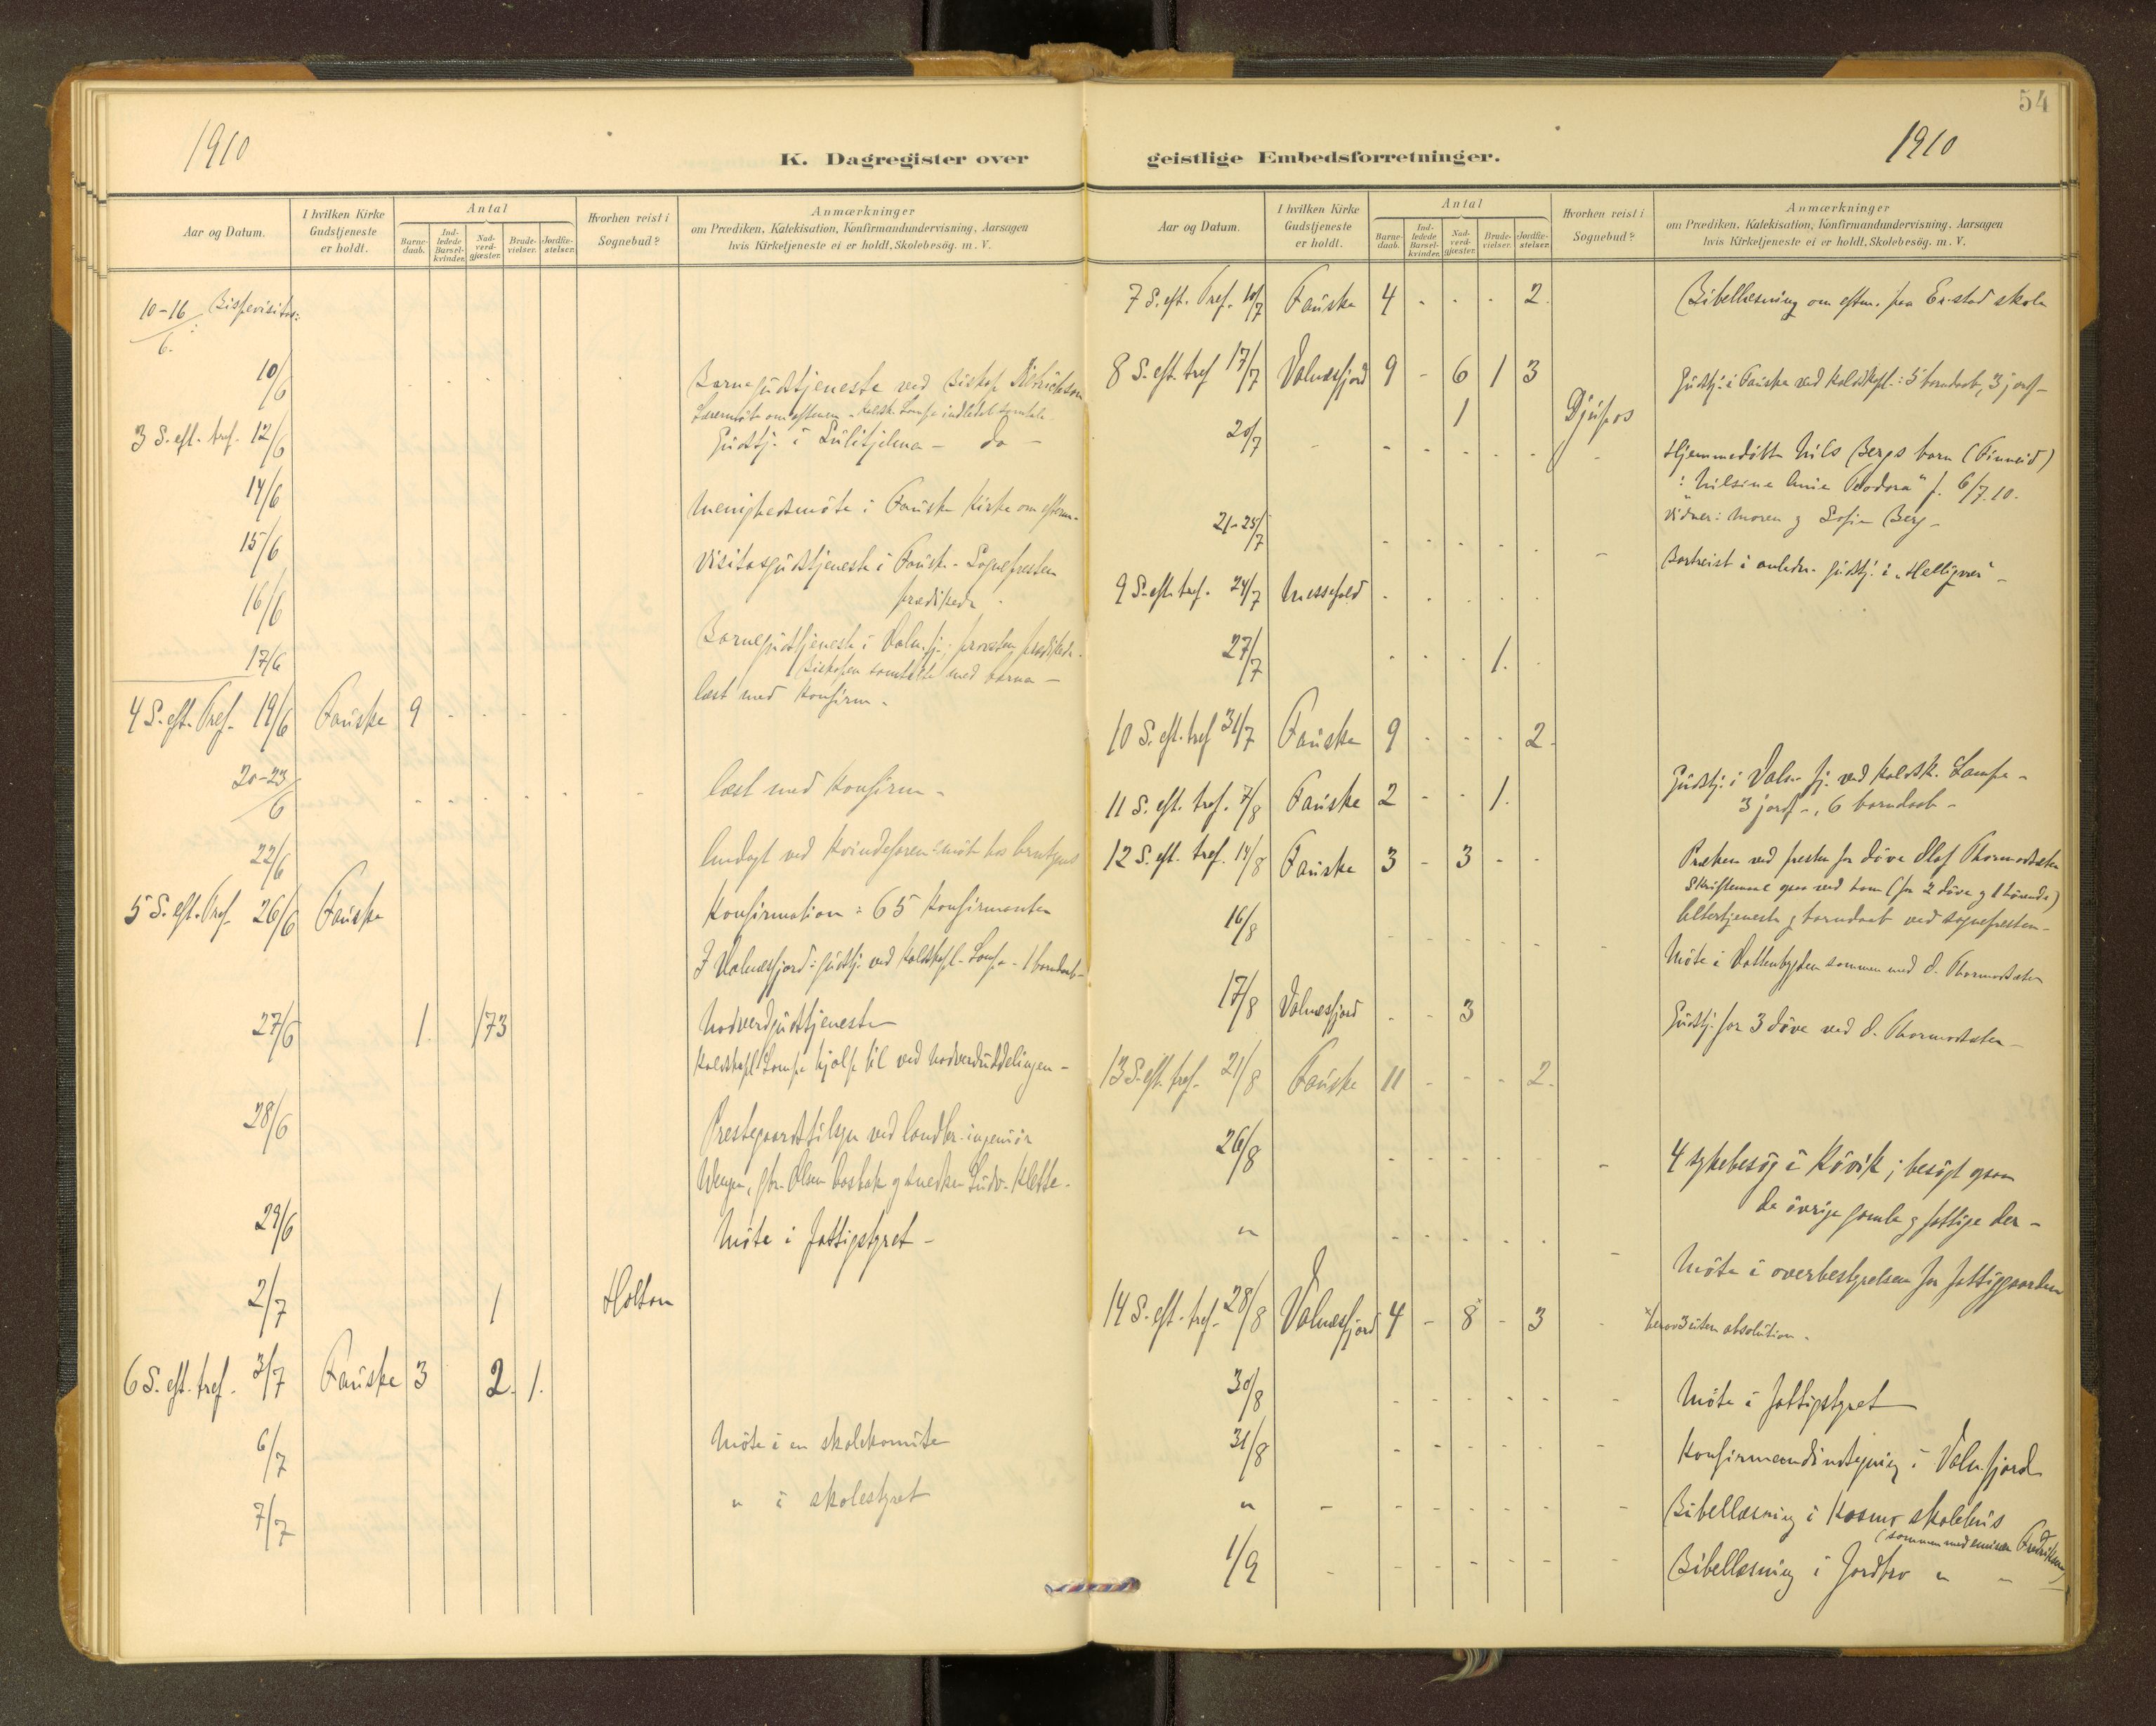 54
1910
1910
K. Dagregister over geistlige Embedsforretninger.
Aar og Datum.
I hvilken Kirke Gudstjeneste er holdt.
Antal
Barnedaab.
Indledede Barselkvinder.
Nadverdgjæster.
Brudevielser.
Jordfæstelser.
Hvorhen reist i Sognebud?
Anmærkninger
om Prædiken, Katekisation, Konfirmandundervisning, Aarsagen
hvis Kirketjeneste ei er holdt, Skolebesög. m. V.
10-16/6. Bispevisitas:
10/6 Barnegudstjeneste ved Biskop
Lærermöte om efterm. - Kaldsk. Lampe indledet samtale.
3 S. eft. tref. 12/6 Gudstj. i Sulitjelma - do -
14/6 Menighetsmöte i Fauske Kirke om efterm.
15/6 Visitasgudstjeneste i Fauske - Sognepresten
prædikede.
16/6 Barnegudstjeneste i Valn.fj.; provsten prædikede.
Biskopen samtalte med barna -
17/6 læst med Konfirm.
4 S. eft. Tref. 19/6 Fauske 9 - - - -
20-23/6 - - - - - - læst med Konfirm.
22/6 Andagt ved Kvindeforen. möte hos
5 S. eft. Tref. 26/6 Fauske Konfirmation: 65 Konfirmanter
I Valnesfjord: Gudstj. ved Kaldskapl. Lampe - 1 barndaab-
27/6 1. 173 Nadverdgudstjeneste
Kaldskapl Lampe hjalp til ved nadverduddelingen -
28/6 Prestegaardstilsyn ved landbr.ingeniör
Olsen og snedker Ludv. Klette.
29/6 Möte i fattigstyret -
2/7 1 Holtan
6 S. eft. tref. 3/7 Fauske 3 2. 1.
6/7 Möte i en skolekomite
7/7 " i skolestyret
Aar og Datum.
I hvilken Kirke Gudstjeneste er holdt.
Antal
Barnedaab.
Indledede Barselkvinder.
Nadverdgjæster.
Brudevielser.
Jordfæstelser.
Hvorhen reist i Sognebud?
Anmærkninger
om Prædiken, Katekisation, Konfirmandundervisning, Aarsagen
hvis Kirketjeneste ei er holdt, Skolebesög. m. V.
7 S. eft. Tref. 10/7 Fauske 4 - - - 2. Bibellæsning om eftm. paa Erstad skole
8 S. eft. tref 17/7 Valnesfjord 9 - 6 1 3 Gudstj. i Fauske ved Kaldskpl.: 5 barndaab, 3 jordf-
20/7 - - - 1 - - Djupos
Hjemmedöbt Nils Bergs barn (Finneid)
: "Nilsine Anie Teodora" f. 6/7.10.
Vidner: Moren og Sofie Berg -
21-25/7 - - - - - - Bortreist i anledn. gudstj. i "Helligvær" -
9 S. eft. tref. 24/7 Messefald - - - - -
27/7 - - - 1. -
10 S. eft. tref 31/7 Fauske 9 - - - 2.
Gudstj. i Valn. fj. ved Kaldsk. Lampe -
3 jordf -, 6 barndaab -
11 S. eft. tref. 7/8 Fauske 2 - - 1.
12 S. eft. tref. 14/8 Fauske 3 - 3 - - Præken ved prester for döve Olaf Thormodsæter
Skriftemaal ogsaa ved ham (for 2 döve og 1 hörende)
Altertjeneste og barndaab ved sognepresten -
16/8 - - - - - - Möte i Vattenbygden sammen med O. Thormodsæter
17/8 Valnesfjord - - 3 Gudstj. for 3 döve ved O. Thormodsæter -
13 S. eft. tref. 21/8 Fauske 11 - - - 2.
26/8 - - - - - - 4 sykebesög i Kövik; besögt ogsaa
de övrige gamle og fattige der -
" - - - - - - Möte i overbestyrelsen for fattiggaarden
14 S. eft. tref. 28/8 Valnesfjord 4 - 8* - 3 - *herav 3 uten absolution.
30/8 - - - - - - Möte i fattigstyret
31/8 - - - - - - Konfirmandindtegning i Valn.fjord
" - - - - - - - Bibellæsning i Kosmo skolehus
(sammen med emissær Fredriksen)
1/9 - - - - - - - Bibellæsning i Jordbro " -